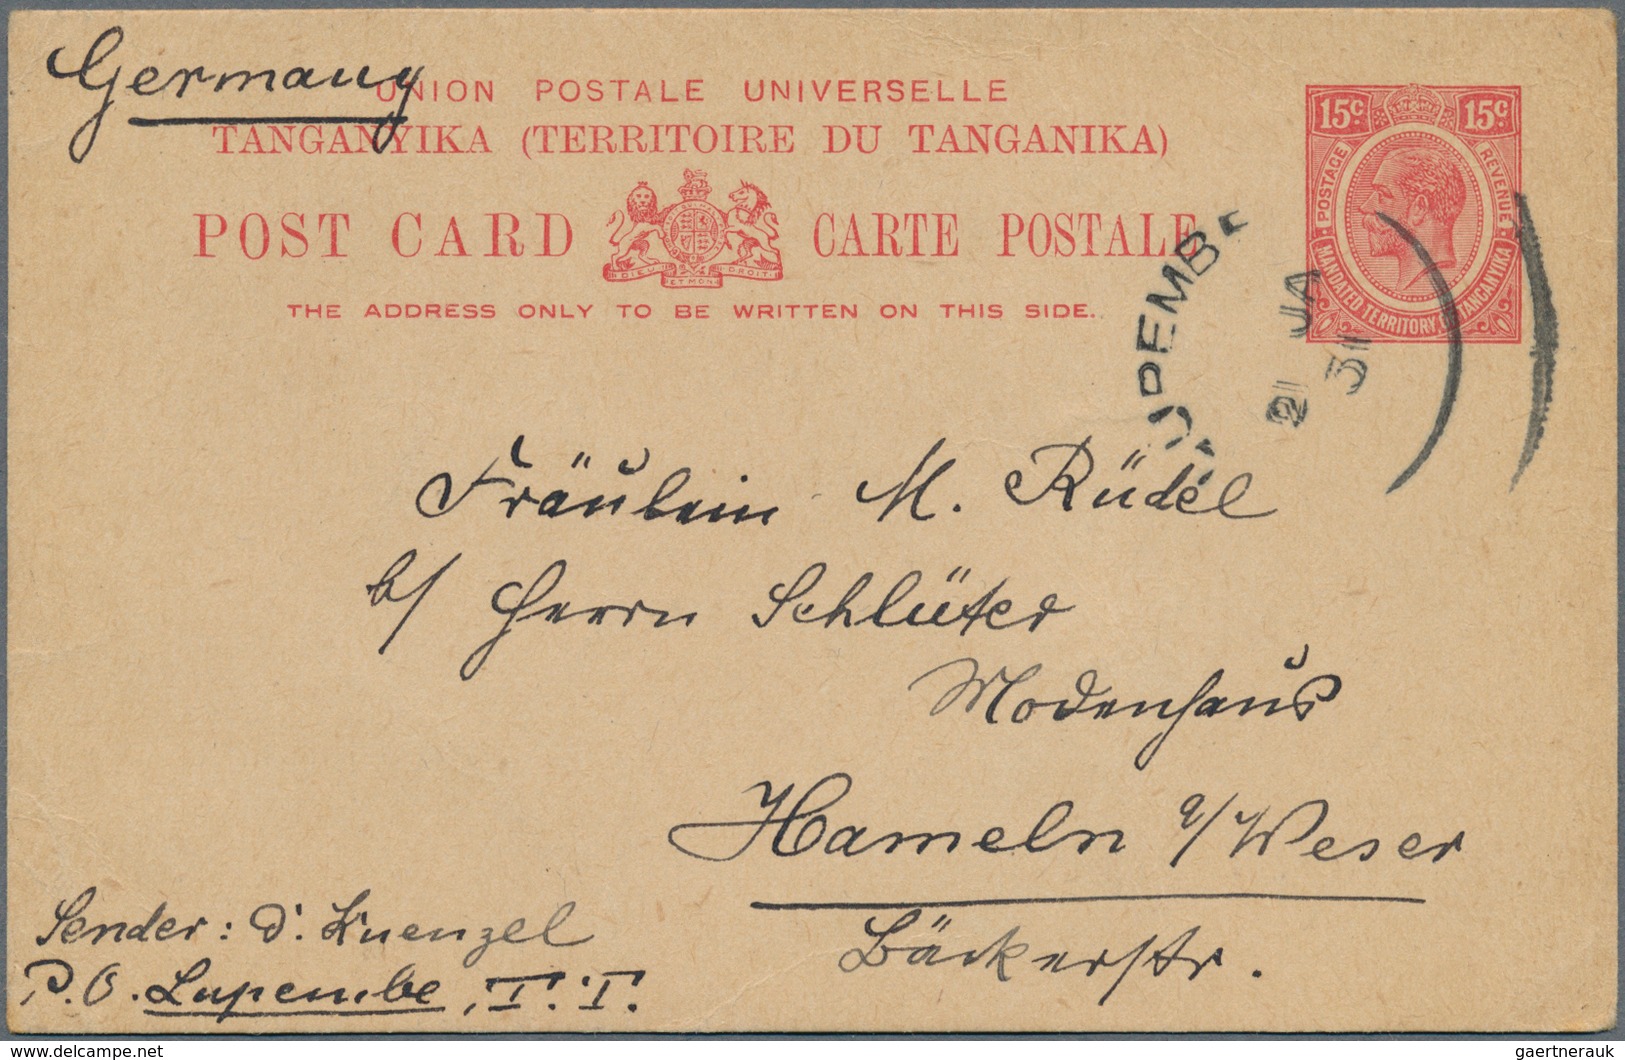 Germany
UNION POSTALE UNIVERSELLE
TANGANYIKA (TERRITOIRE DU TANGANIKA)
POST CARD CARTE POSTALE
DIEU ET MON DROIT
THE ADDRESS ONLY TO BE WRITTEN ON THIS SIDE.
15c 15c
POSTAGE REVENUE
MANDATED TERRITORY OF TANGANYIKA
LUPEMBE
21 JA
31
Fräulein M. Rüdel
b/ Herrn Schlüter
Modenhaus
Hameln a/Weser
Bäckerstr.
Sender: D. Kuenzel
P.O. Lupembe, T.T.
www.delcampe.net
gaertnerauk